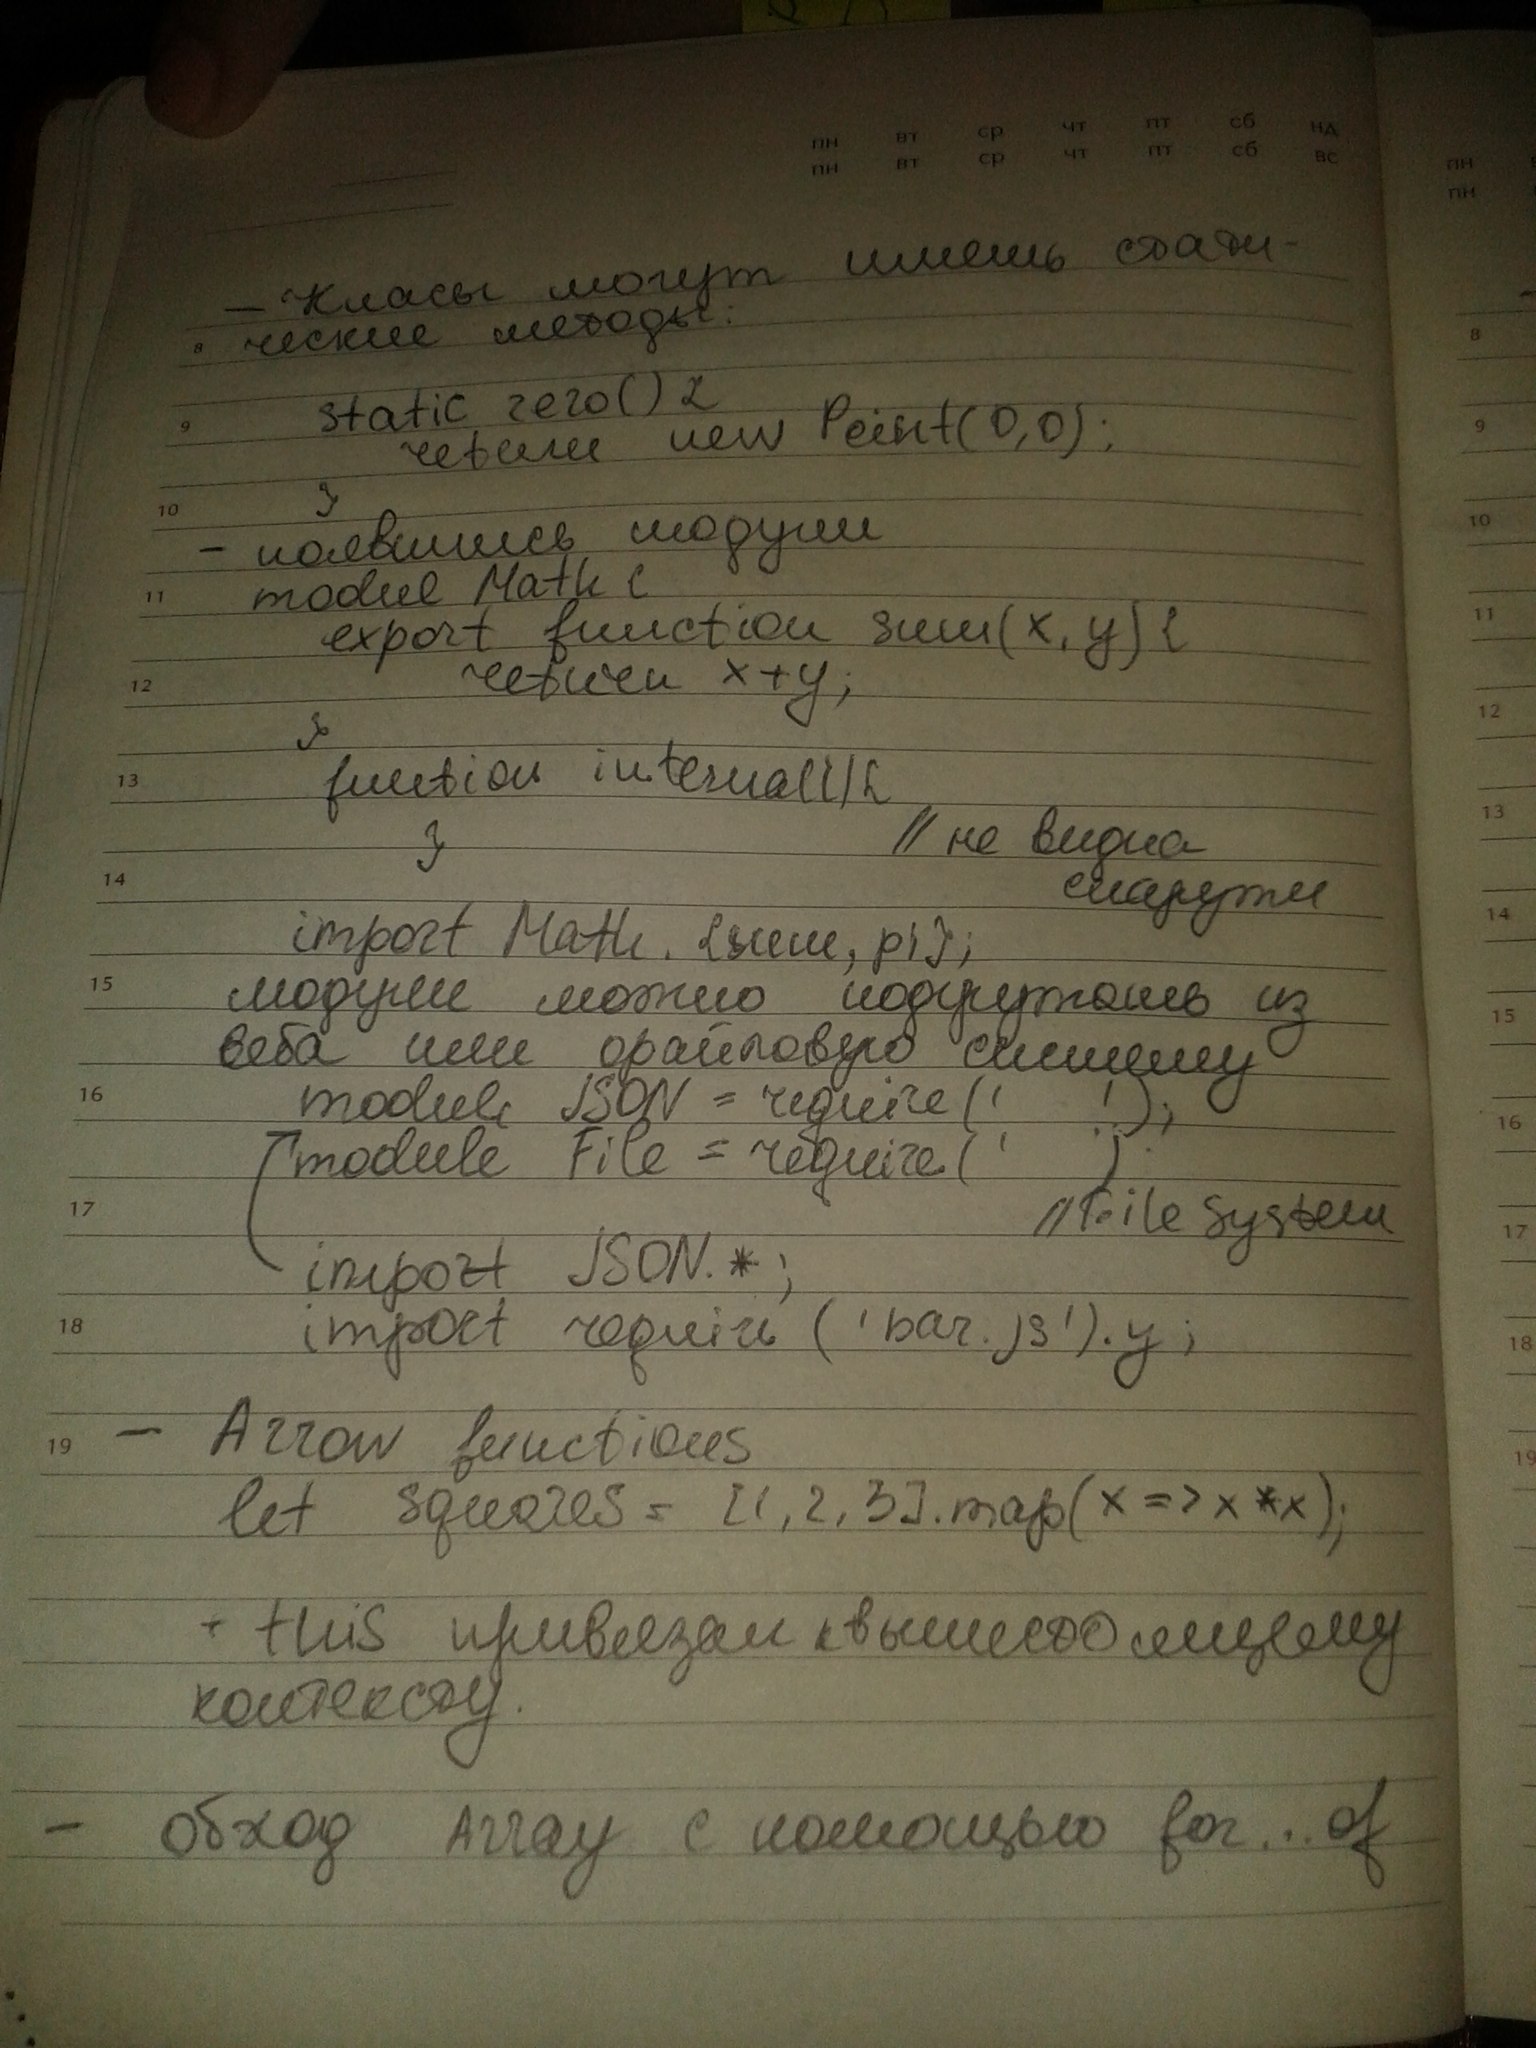 пн вт ср чт пт сб нд
пн вт ср чт пт сб вс
пн
пн
- Класы могут иметь стати-
8 ческие методы:
9 static zero() {
return new Point(0,0);
10 }
- появились модули
11 modul Math {
export function sum(x, y) {
12 return x+y;
}
13 function internal() {
} // не видна
14 снаружи
import Math. {sum, pi};
15 модули можно подгружать из
веба или файловую систему
16 module JSON = require(' ');
module File = require(' )
17 // File system
import JSON.*;
18 import require ('bar.js').y;
19 - Arrow functions
let squares = [1, 2, 3].map(x => x * x);
+ this привязан к вышестоящему
контексту.
- обход Array с помощью for...of
8
9
10
11
12
13
14
15
16
17
18
19